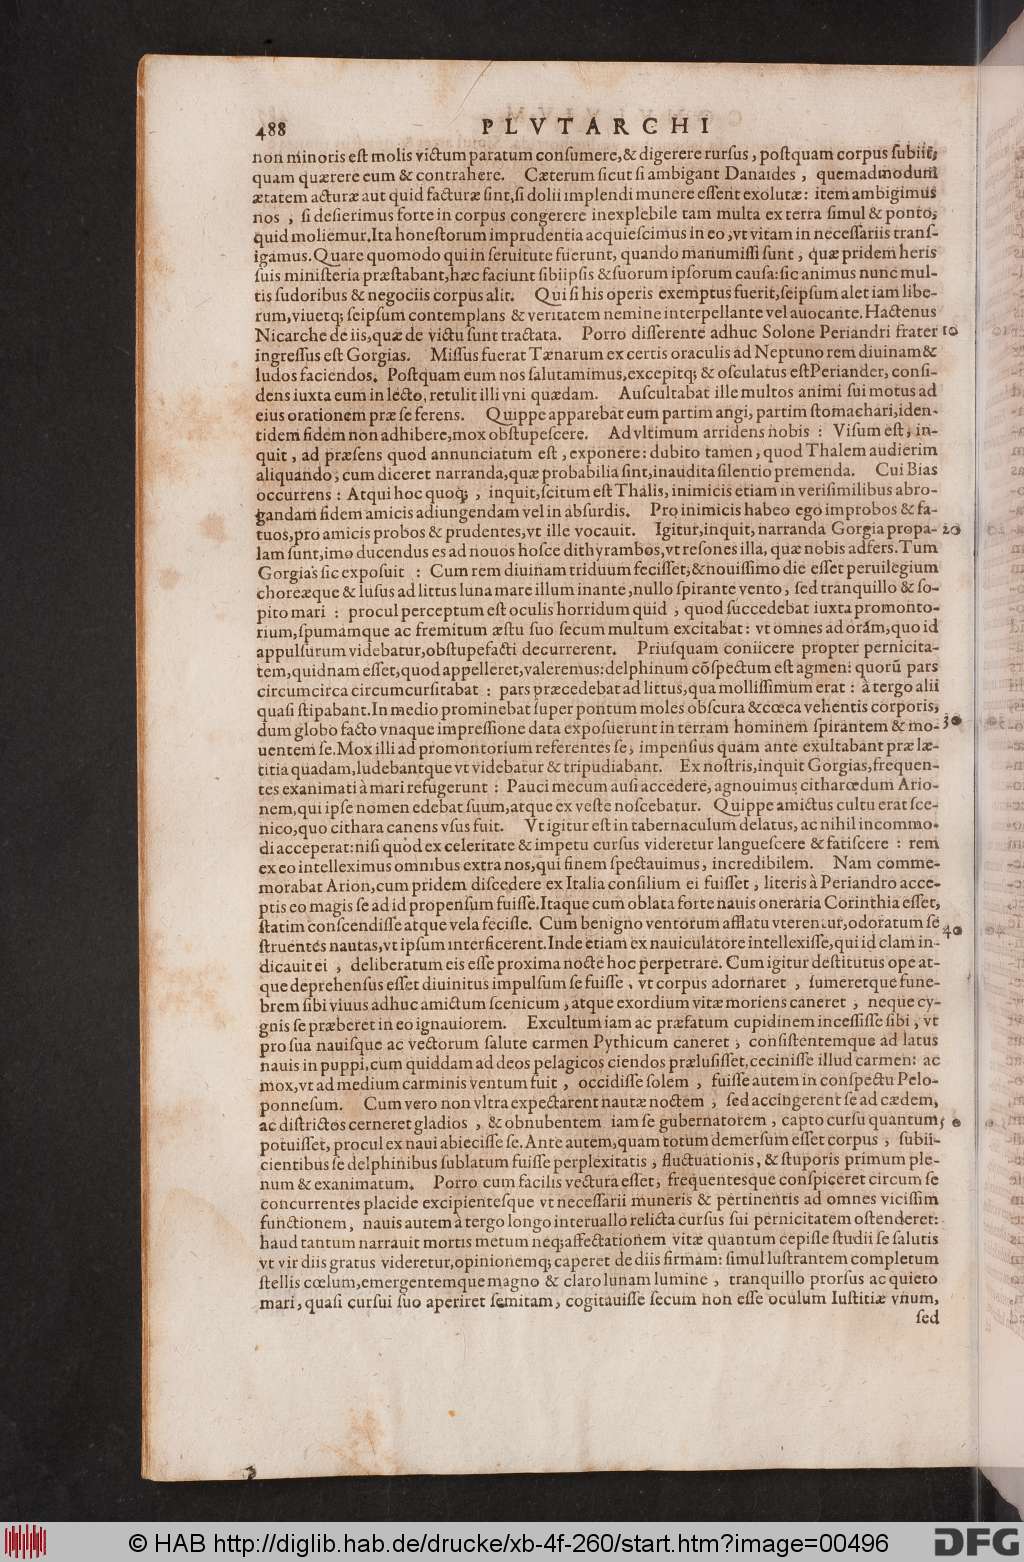 488 PLVTARCHI
non minoris est molis victum paratum consumere,& digerere rursus, postquam corpus subiit;
quam quærere eum & contrahere. Cæterum sicut si ambigant Danaides, quemadmodum
ætatem acturæ aut quid facturæ sint, si dolii implendi munere essent exolutæ: item ambigimus
nos, si desierimus forte in corpus congerere inexplebile tam multa ex terra simul & ponto,
quid moliemur. Ita honestorum imprudentia acquiescimus in eo, vt vitam in necessariis trans-
igamus. Quare quomodo qui in seruitute fuerunt, quando manumissi sunt, quæ pridem heris
suis ministeria præstabant, hæc faciunt sibiipsis & suorum ipsorum causa: sic animus nunc mul-
tis sudoribus & negociis corpus alit. Qui si his operis exemptus fuerit, seipsum alet iam libe-
rum, viuetq; seipsum contemplans & veritatem nemine interpellante vel auocante. Hactenus
Nicarche de iis, quæ de victu sunt tractata. Porro disserente adhuc Solone Periandri frater 10
ingressus est Gorgias. Missus fuerat Tænarum ex certis oraculis ad Neptuno rem diuinam &
ludos faciendos. Postquam eum nos salutamimus, excepitq; & osculatus est Periander, consi-
dens iuxta eum in lecto, retulit illi vni quædam. Auscultabat ille multos animi sui motus ad
eius orationem præ se ferens. Quippe apparebat eum partim angi, partim stomachari, iden-
tidem fidem non adhibere, mox obstupescere. Ad vltimum arridens nobis: Visum est, in-
quit, ad præsens quod annunciatum est, exponere: dubito tamen, quod Thalem audierim
aliquando, cum diceret narranda, quæ probabilia sint, inaudita silentio premenda. Cui Bias
occurrens: Atqui hoc quoq;, inquit, scitum est Thalis, inimicis etiam in verisimilibus abro-
gandam fidem amicis adiungendam vel in absurdis. Pro inimicis habeo ego improbos & fa-
tuos, pro amicis probos & prudentes, vt ille vocauit. Igitur, inquit, narranda Gorgia propa- 20
lam sunt, imo ducendus es ad nouos hosce dithyrambos, vt resones illa, quæ nobis adfers. Tum
Gorgias sic exposuit: Cum rem diuinam triduum fecisset, & nouissimo die esset peruilegium
choreæque & lusus ad littus luna mare illuminante, nullo spirante vento, sed tranquillo & so-
pito mari: procul perceptum est oculis horridum quid, quod succedebat iuxta promonto-
rium, spumamque ac fremitum æstu suo secum multum excitabat: vt omnes ad orâm, quo id
appulsurum videbatur, obstupefacti decurrerent. Priusquam coniicere propter pernicita-
tem, quidnam esset, quod appelleret, valeremus: delphinum cõspectum est agmen: quorũ pars
circumcirca circumcursitabat: pars præcedebat ad littus, qua mollissimum erat: à tergo alii
quasi stipabant. In medio prominebat super pontum moles obscura & cœca vehentis corporis,
dum globo facto vnaque impressione data exposuerunt in terram hominem spirantem & mo- 30
uentem se. Mox illi ad promontorium referentes se, impensius quam ante exultabant præ læ-
titia quadam, ludebantque vt videbatur & tripudiabant. Ex nostris, inquit Gorgias, frequen-
tes exanimati à mari refugerunt: Pauci mecum ausi accedere, agnouimus citharœdum Ario-
nem, qui ipse nomen edebat suum, atque ex veste noscebatur. Quippe amictus cultu erat sce-
nico, quo cithara canens vsus fuit. Vt igitur est in tabernaculum delatus, ac nihil incommo-
di acceperat: nisi quod ex celeritate & impetu cursus videretur languescere & fatiscere: rem
ex eo intelleximus omnibus extra nos, qui finem spectauimus, incredibilem. Nam comme-
morabat Arion, cum pridem discedere ex Italia consilium ei fuisset, literis à Periandro acce-
ptis eo magis se ad id propensum fuisse. Itaque cum oblata forte nauis oneraria Corinthia esset,
statim conscendisse atque vela fecisse. Cum benigno ventorum afflatu vterentur, odoratum se
struentes nautas, vt ipsum interficerent. Inde etiam ex nauiculatore intellexisse, qui id clam in- 40
dicauit ei, deliberatum eis esse proxima nocte hoc perpetrare. Cum igitur destitutus ope at-
que deprehensus esset diuinitus impulsum se fuisse, vt corpus adornaret, sumeretque fune-
brem sibi viuus adhuc amictum scenicum, atque exordium vitæ moriens caneret, neque cy-
gnis se præberet in eo ignauiorem. Excultum iam ac præfatum cupidinem incessisse sibi, vt
pro sua nauisque ac vectorum salute carmen Pythicum caneret, consistentemque ad latus
nauis in puppi, cum quiddam ad deos pelagicos ciendos prælusisset, cecinisse illud carmen: ac
mox, vt ad medium carminis ventum fuit, occidisse solem, fuisse autem in conspectu Pelo-
ponnesum. Cum vero non vltra expectarent nautæ noctem, sed accingerent se ad cædem,
ac districtos cerneret gladios, & obnubentem iam se gubernatorem, capto cursu quantum 50
potuisset, procul ex naui abiecisse se. Ante autem, quam totum demersum esset corpus, subii-
cientibus se delphinibus sublatum fuisse perplexitatis, fluctuationis, & stuporis primum ple-
num & exanimatum. Porro cum facilis vectura esset, frequentesque conspiceret circum se
concurrentes placide excipientesque vt necessarii muneris & pertinentis ad omnes vicissim
functionem, nauis autem à tergo longo interuallo relicta cursus sui pernicitatem ostenderet:
haud tantum narrauit mortis metum neq; affectationem vitæ quantum cepisse studii se salutis
vt vir diis gratus videretur, opinionemq; caperet de diis firmam: simul lustrantem completum
stellis cœlum, emergentemque magno & claro lunam lumine, tranquillo prorsus ac quieto
mari, quasi cursui suo aperiret semitam, cogitauisse secum non esse oculum Iustitiæ vnum,
sed
© HAB http://diglib.hab.de/drucke/xb-4f-260/start.htm?image=00496
DFG